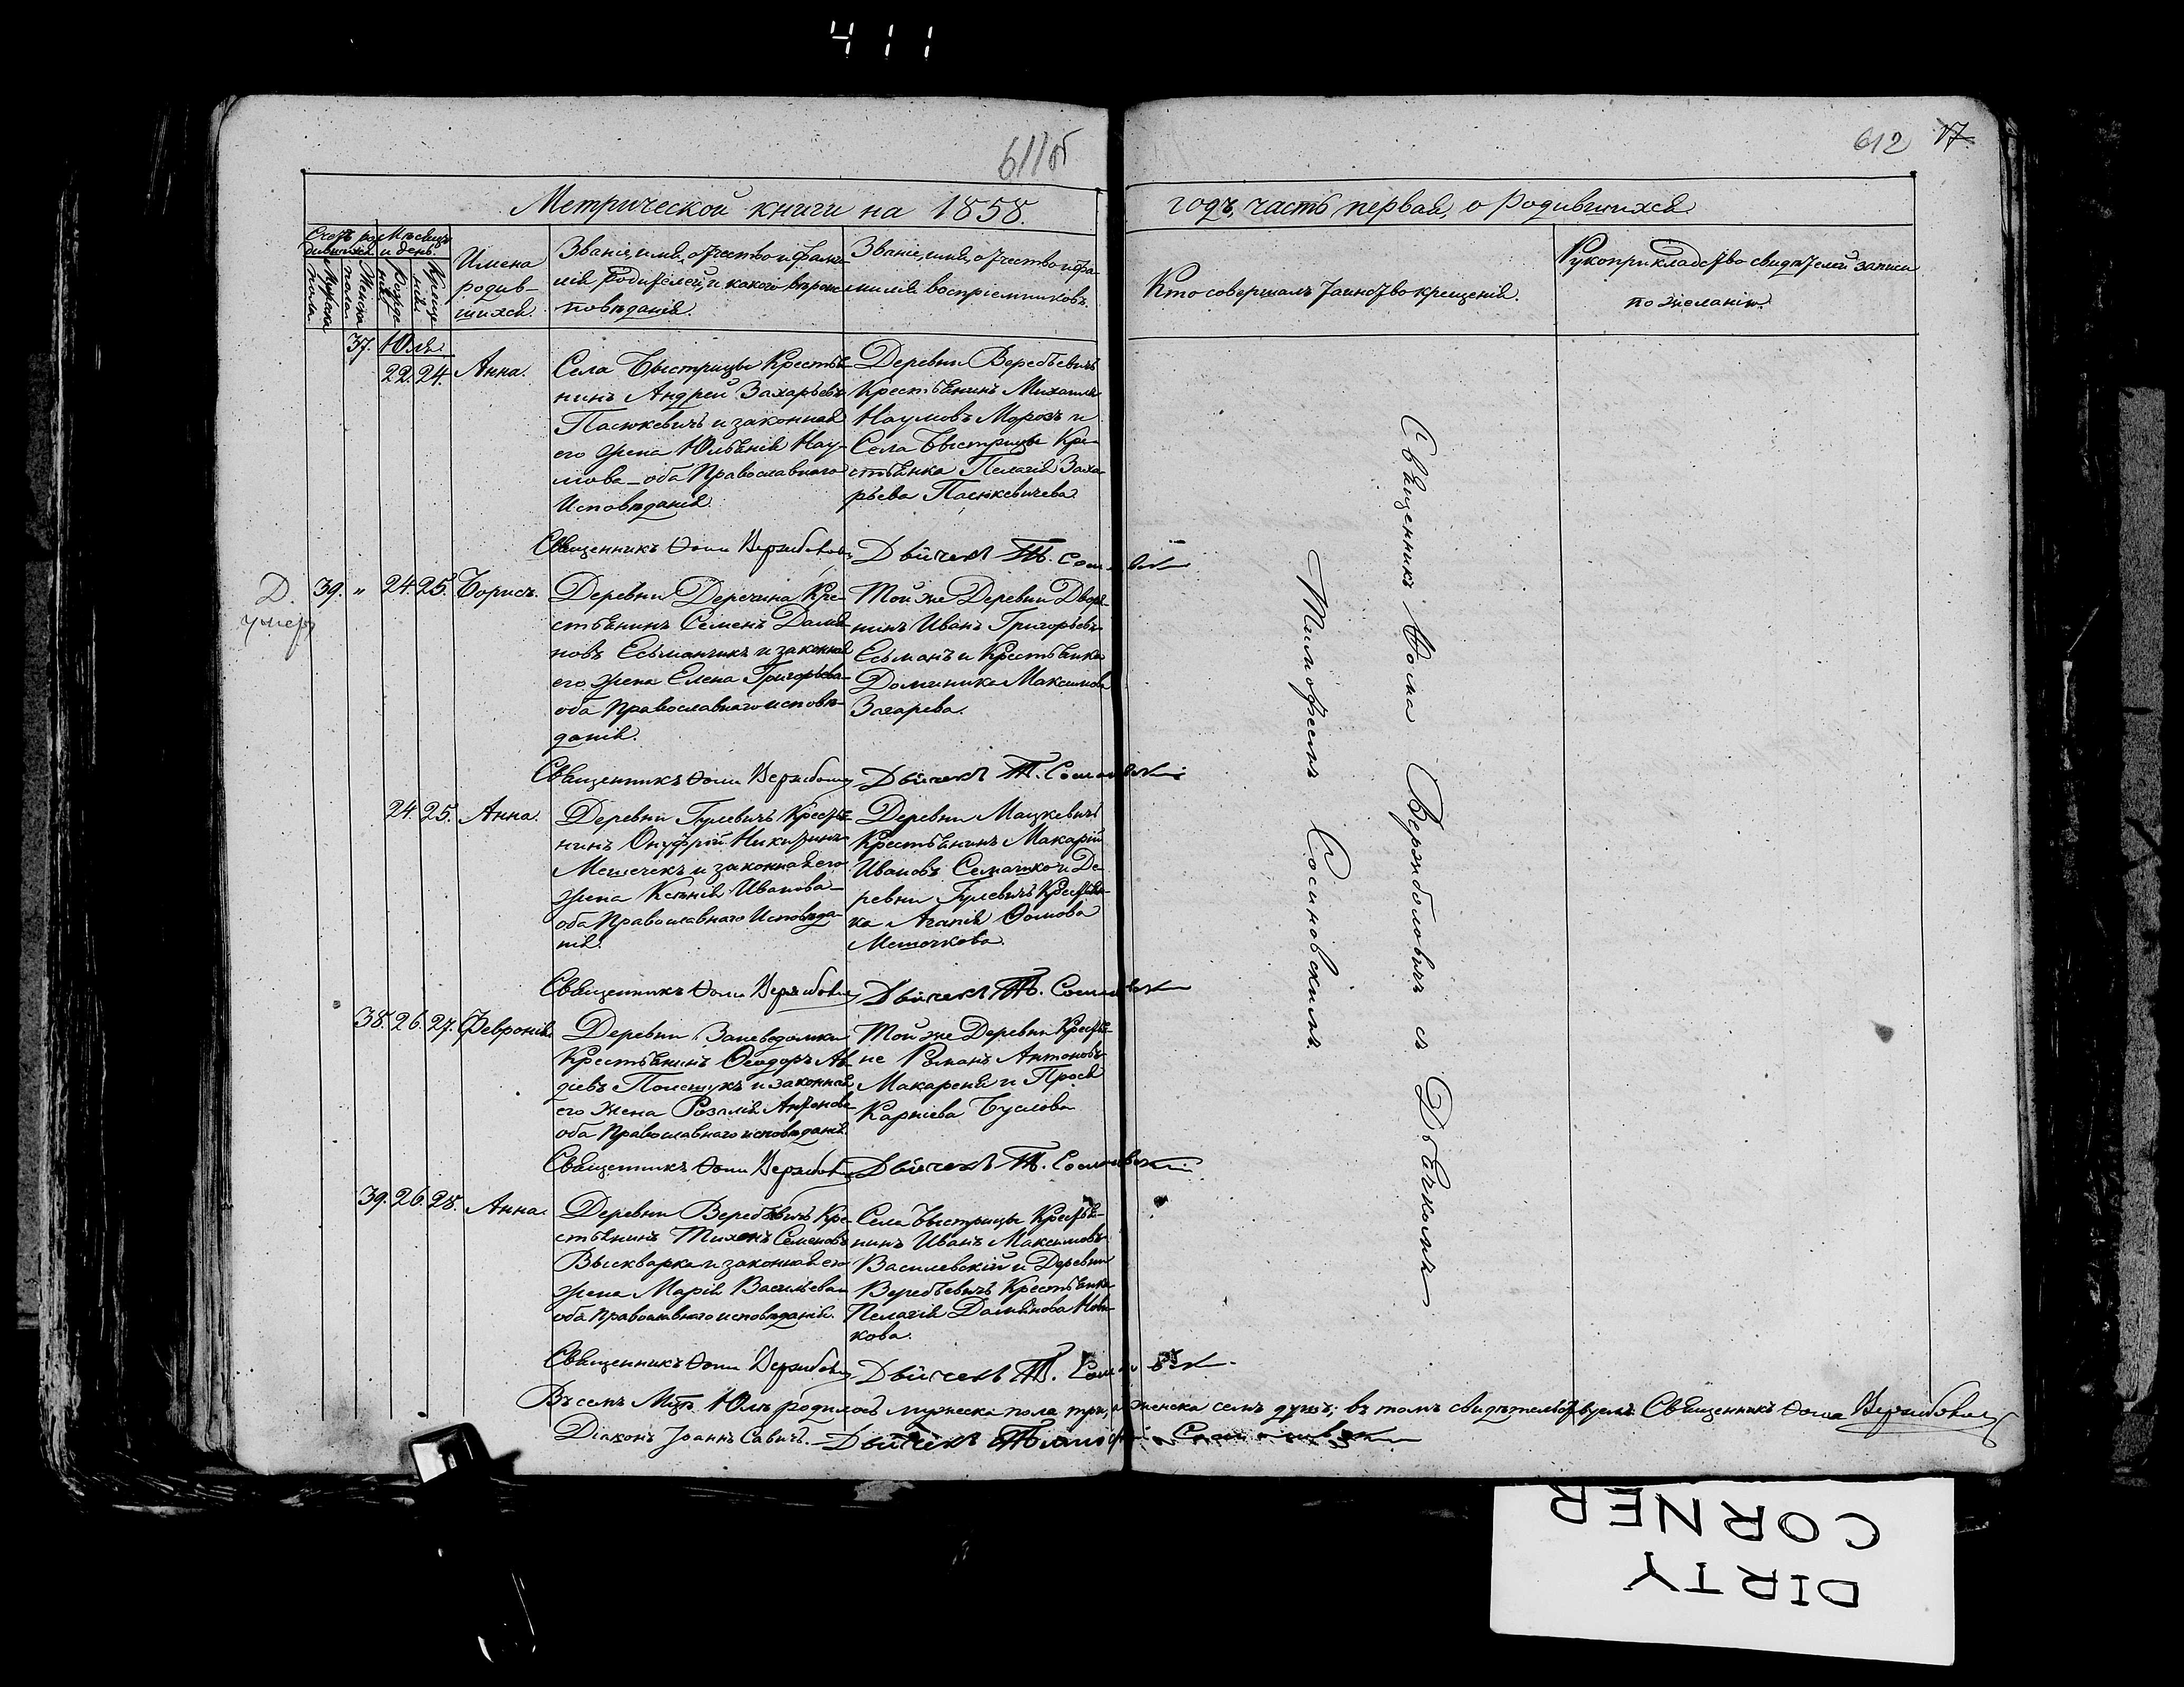 411
611об
612 17
Метрической книги на 1858.
годъ, часть первая, о родившихся.
Счетъ ро-
дившихся
Мужска
пола
Женска
пола
Мѣсяцъ
и день.
Рожде
нія
Креще
нія
Имена
родив-
шихся.
Званіе, имя, отчество и фами-
лія родителей, и какого вѣроис
повѣданія.
Званіе, имя, отчество и фа-
милія воспріемниковъ.
Кто совершалъ таинство крещенія.
Рукоприкладство свидѣтелей записи
по желанію.
37. Юля.
22. 24. Анна.
Села Быстрицы Крестья-
нинъ Андрей Захарьевъ
Пасюкевичъ и законная
его жена Юльянія Нау-
мова – оба Православнаго
Исповѣданія.
Деревни Веребьевичъ
Крестьянинъ Михаилъ
Наумовъ Морозъ и
Села Быстрицы Кре-
стьянка Пелагія Заха-
рьева Пасюкевичева
Священникъ Ѳома Вержболовичъ
Дьячекъ Т. Сосиновскій
Д.
умеръ
39. „ 24. 25. Борисъ.
Деревни Деречина Кре-
стьянинъ Семенъ Дамiя-
новъ Есьманчикъ и законная
его жена Елена Григорьева
оба Православнаго исповѣ-
данія.
Той же Деревни Дворя-
нинъ Иванъ Григорьевъ
Есьманъ и Крестьянка
Доминика Максимова
Захарева.
Священникъ Ѳома Вержболовичъ
Дьячекъ Т. Сосиновскій
24. 25. Анна.
Деревни Гулевичъ Крестья-
нинъ Онуфрій Никитинъ
Мешечекъ и законная его
жена Ксенія Иванова –
оба Православнаго Исповѣда-
нія.
Деревни Мацкевичъ
Крестьянинъ Макарій
Ивановъ Семашко и Де-
ревни Гулевичъ Крестьян-
ка Агапія Ѳомова
Мешочкова.
Священникъ Ѳома Вержболовичъ
Дьячекъ Т. Сосиновскій
38. 26. 27. Февронія.
Деревни
Крестьянинъ Ѳеодоръ Ав-
діевъ Полещукъ и законная
его жена Розалія Антонова
оба Православнаго исповѣданія.
Той же Деревни Крестья-
не Романъ Антоновъ
Макареня и Прося
Карпіева Буслова
Священникъ Ѳома Вержболовичъ
Дьячекъ Т. Сосиновскій
39. 26. 28. Анна.
Деревни Веребьевичъ Кре-
стьянинъ Тихонъ Семеновъ
Выскварка и законная его
жена Марія Васильева
оба Православнаго исповѣданія.
Села Быстрицы Крестья-
нинъ Иванъ Максимовъ
Василевскій и Деревни
Веребьевичъ Крестьянка
Пелагія Даміянова Нови-
кова.
Священникъ Ѳома Вержболовичъ
Дьячекъ Т. Сосиновскій
Въ семъ Мцѣ Юлѣ родилось мужеска пола три, а женска семь душъ; въ томъ свидѣтельствуемъ Священникъ Ѳома Вержболовичъ
Діаконъ Іоаннъ Савичъ. Дьячекъ Тимофей Сосиновскій
Священникъ Ѳома Вержболовичъ съ Дьячкомъ
Тимофеемъ Сосиновскимъ.
DIRTY
CORNER